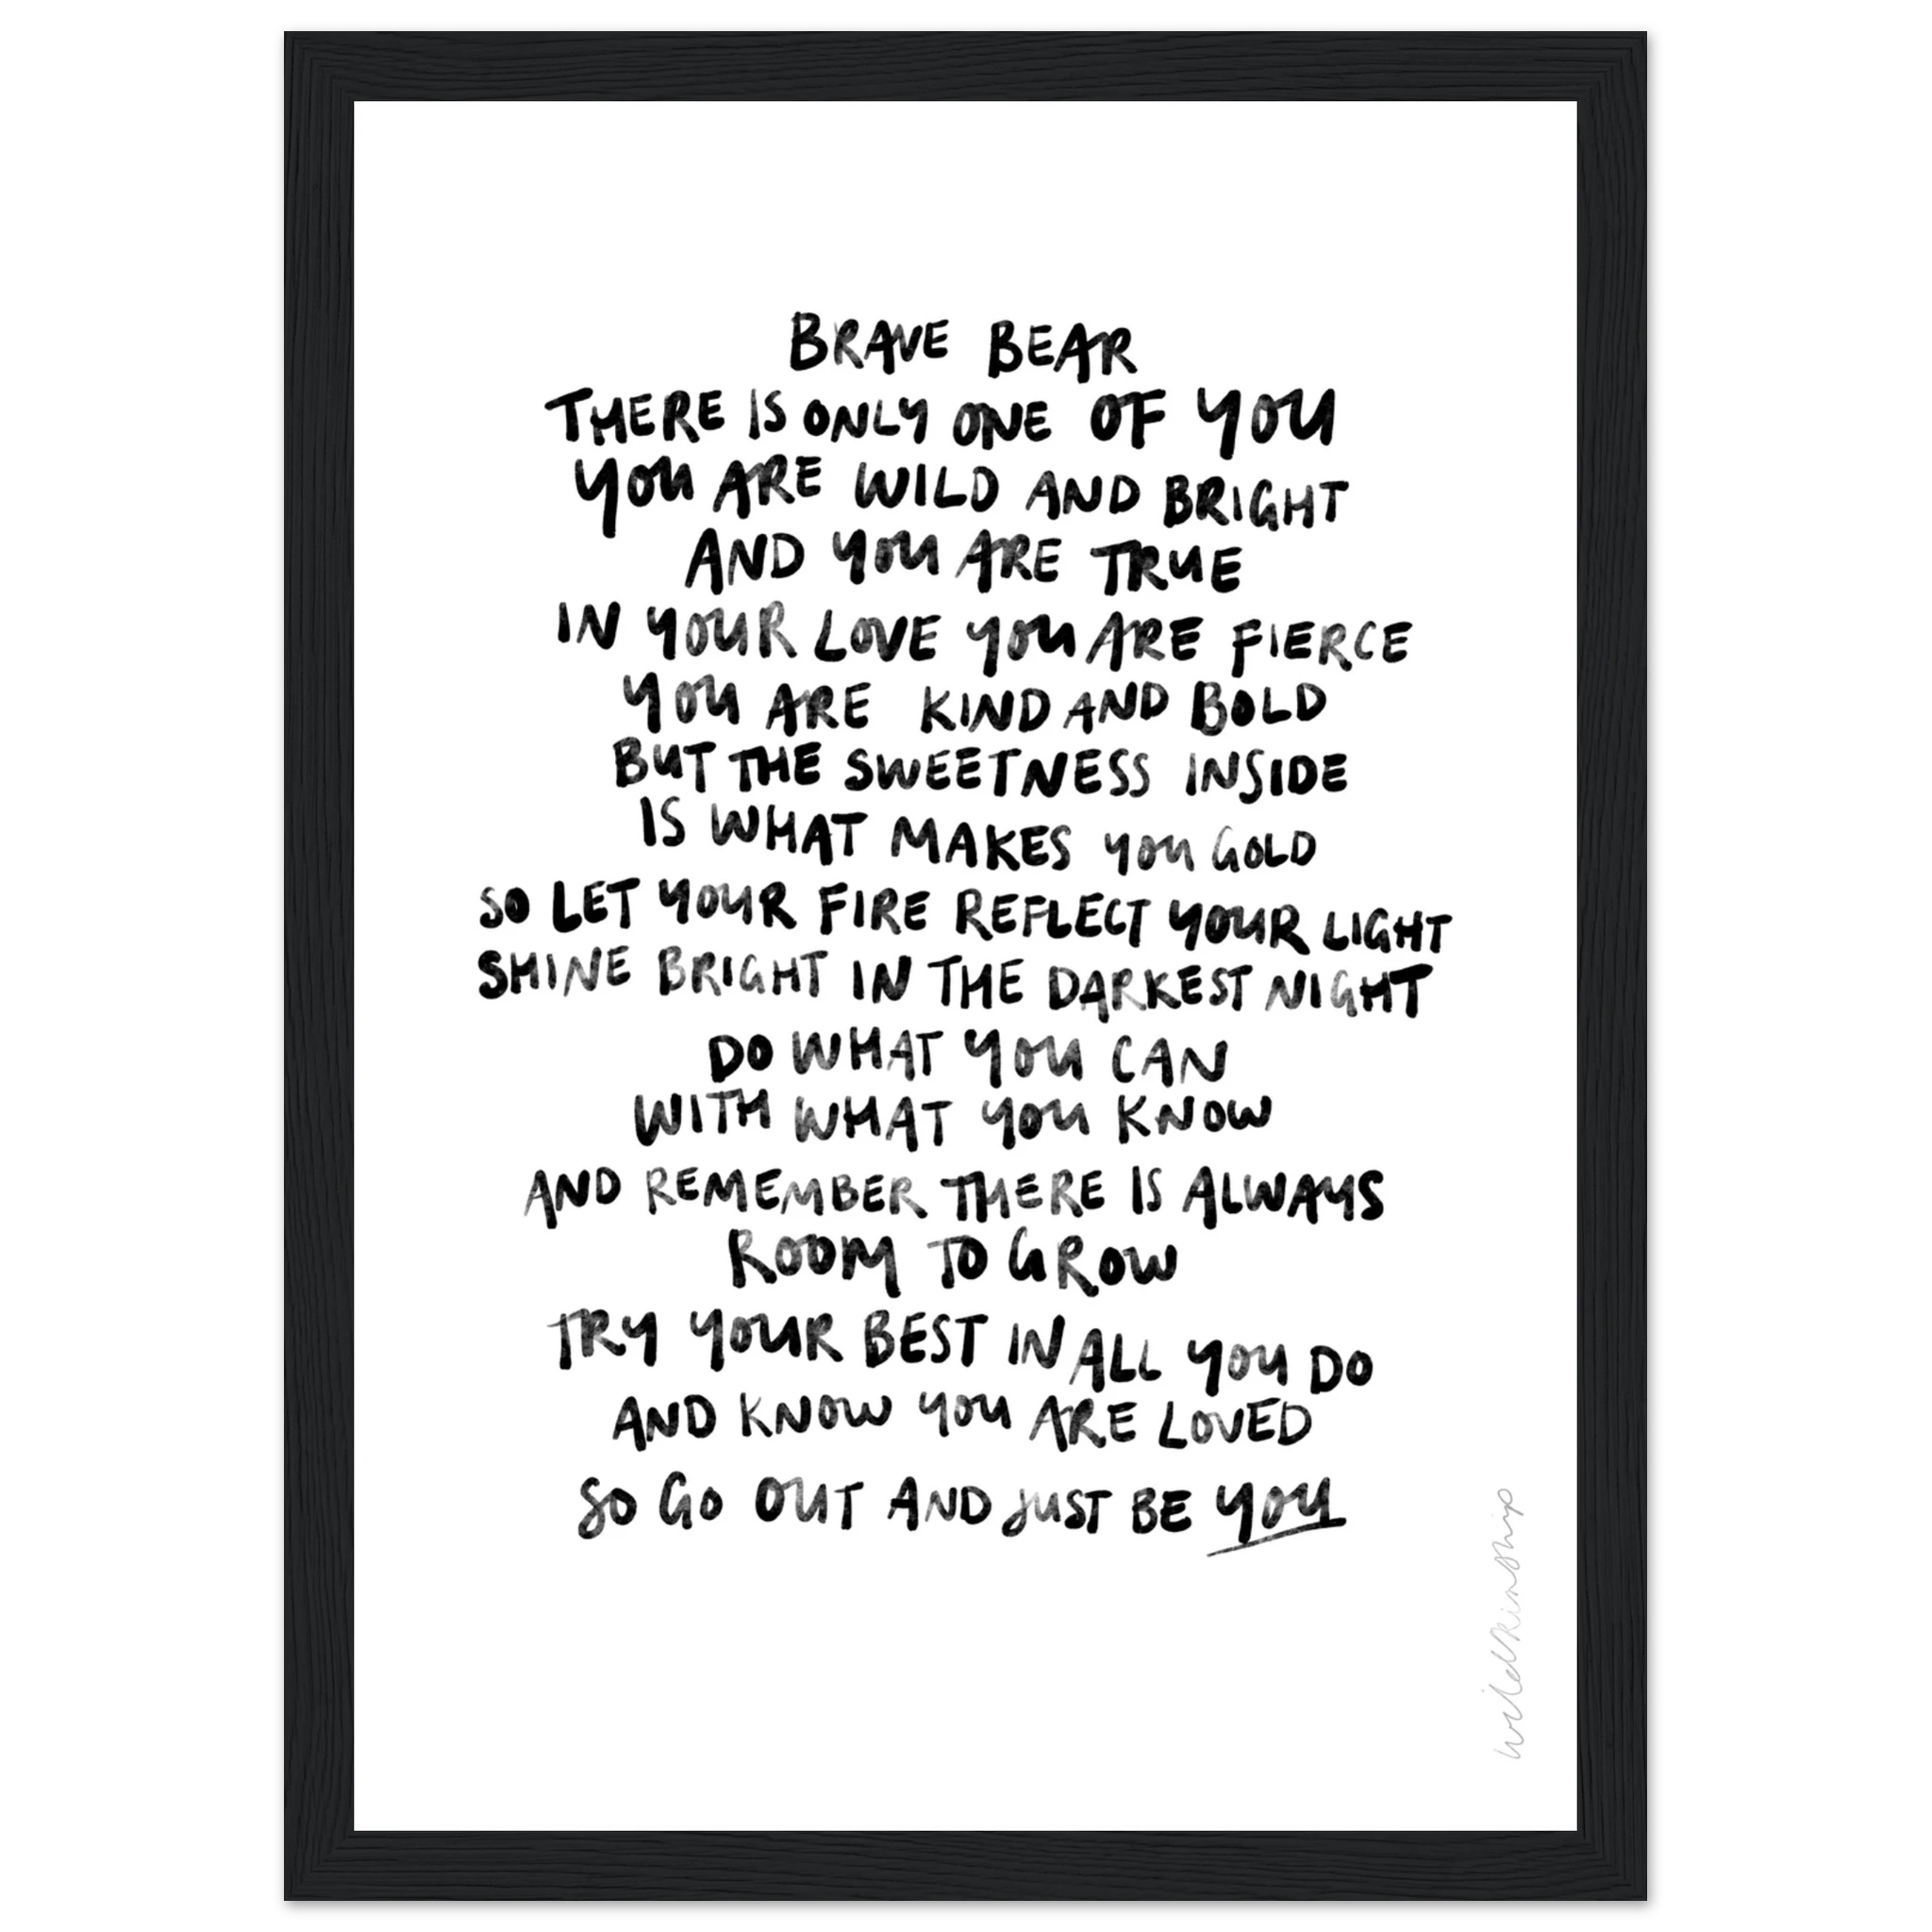 BRAVE BEAR
THERE IS ONLY ONE OF YOU
YOU ARE WILD AND BRIGHT
AND YOU ARE TRUE
IN YOUR LOVE YOU ARE FIERCE
YOU ARE KIND AND BOLD
BUT THE SWEETNESS INSIDE
IS WHAT MAKES YOU GOLD
SO LET YOUR FIRE REFLECT YOUR LIGHT
SHINE BRIGHT IN THE DARKEST NIGHT
DO WHAT YOU CAN
WITH WHAT YOU KNOW
AND REMEMBER THERE IS ALWAYS
ROOM TO GROW
TRY YOUR BEST IN ALL YOU DO
AND KNOW YOU ARE LOVED
SO GO OUT AND JUST BE YOU
wildkinship